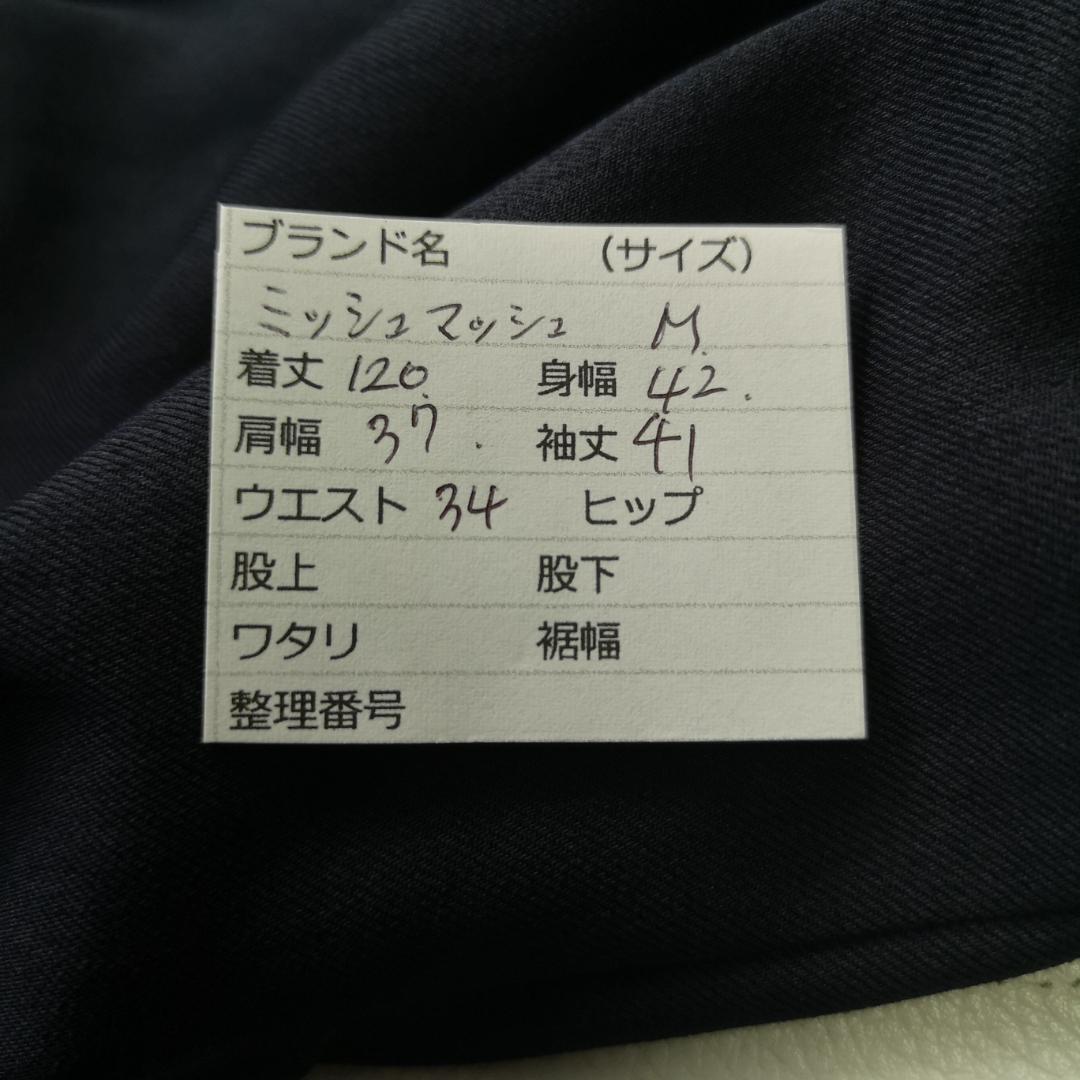 ブランド名 （サイズ）
ミッシュマッシュ M.
着丈 120. 身幅 42.
肩幅 37. 袖丈 41
ウエスト 34 ヒップ
股上 股下
ワタリ 裾幅
整理番号